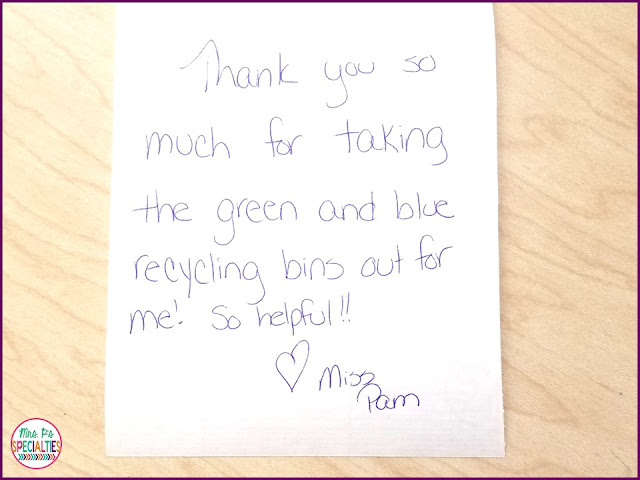 Thank you so
much for taking
the green and blue
recycling bins out for
me! So helpful!!
♡ Miss
Pam
Mrs. P's
SPECIALTIES